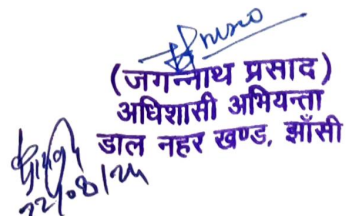 (जगन्नाथ प्रसाद)
अधिशासी अभियन्ता
डाल नहर खण्ड, झाँसी
22/08/24